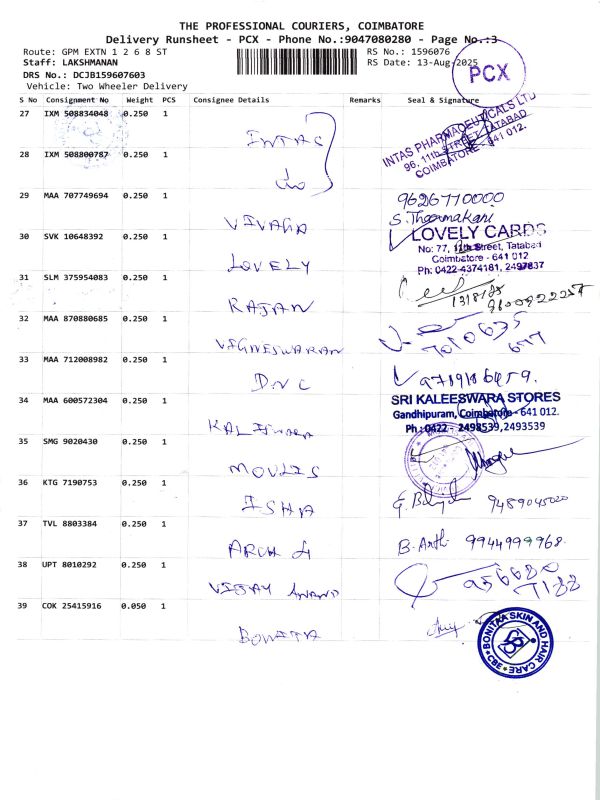 THE PROFESSIONAL COURIERS, COIMBATORE
Delivery Runsheet - PCX - Phone No.:9047080280 - Page No.:3
Route: GPM EXTN 1 2 6 8 ST
RS No.: 1596076
Staff: LAKSHMANAN
RS Date: 13-Aug-2025
PCX
DRS No.: DCJB159607603
Vehicle: Two Wheeler Delivery
S No Consignment No Weight PCS Consignee Details Remarks Seal & Signature
27 IXM 508834048 0.250 1
INTAS
INTAS PHARMACEUTICALS LTD
96, 11th STREET, TATABAD
COIMBATORE - 641 012.
28 IXM 508800787 0.250 1
do
29 MAA 707749694 0.250 1
9626770000
VIVAGA
30 SVK 10648392 0.250 1
LOVELY CARDS
No: 77, 11th Street, Tatabad
Coimbatore - 641 012
Ph: 0422-4374181, 2497837
LOVELY
31 SLM 375954083 0.250 1
RAJAN
32 MAA 870880685 0.250 1
VIGNESWARAN
33 MAA 712008982 0.250 1
DNC
34 MAA 600572304 0.250 1
SRI KALEESWARA STORES
Gandhipuram, Coimbatore - 641 012.
Ph : 0422 - 2498539, 2493539
KALISWARA
35 SMG 9020430 0.250 1
MOVLIS
36 KTG 7190753 0.250 1
ISHA
37 TVL 8803384 0.250 1
B. Arthi 9944999968
38 UPT 8010292 0.250 1
VIJAY ANAND
39 COK 25415916 0.050 1
BONITA
BONITAA SKIN AND HAIR CARE
CBE